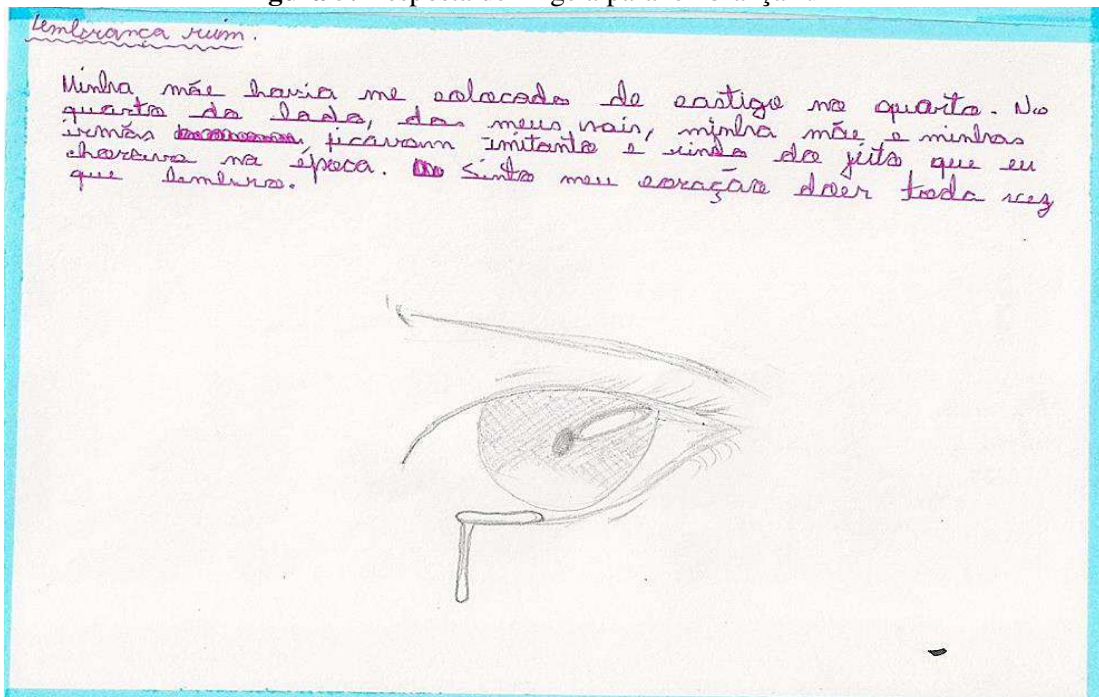 Lembrança ruim.
Minha mãe havia me colocado de castigo no quarto. No
quarto do lado, dos meus pais, minha mãe e minhas
irmãs ficavam imitanto e rindo do jeito que eu
chorava na época. Sinto meu coração doer toda vez
que lembro.